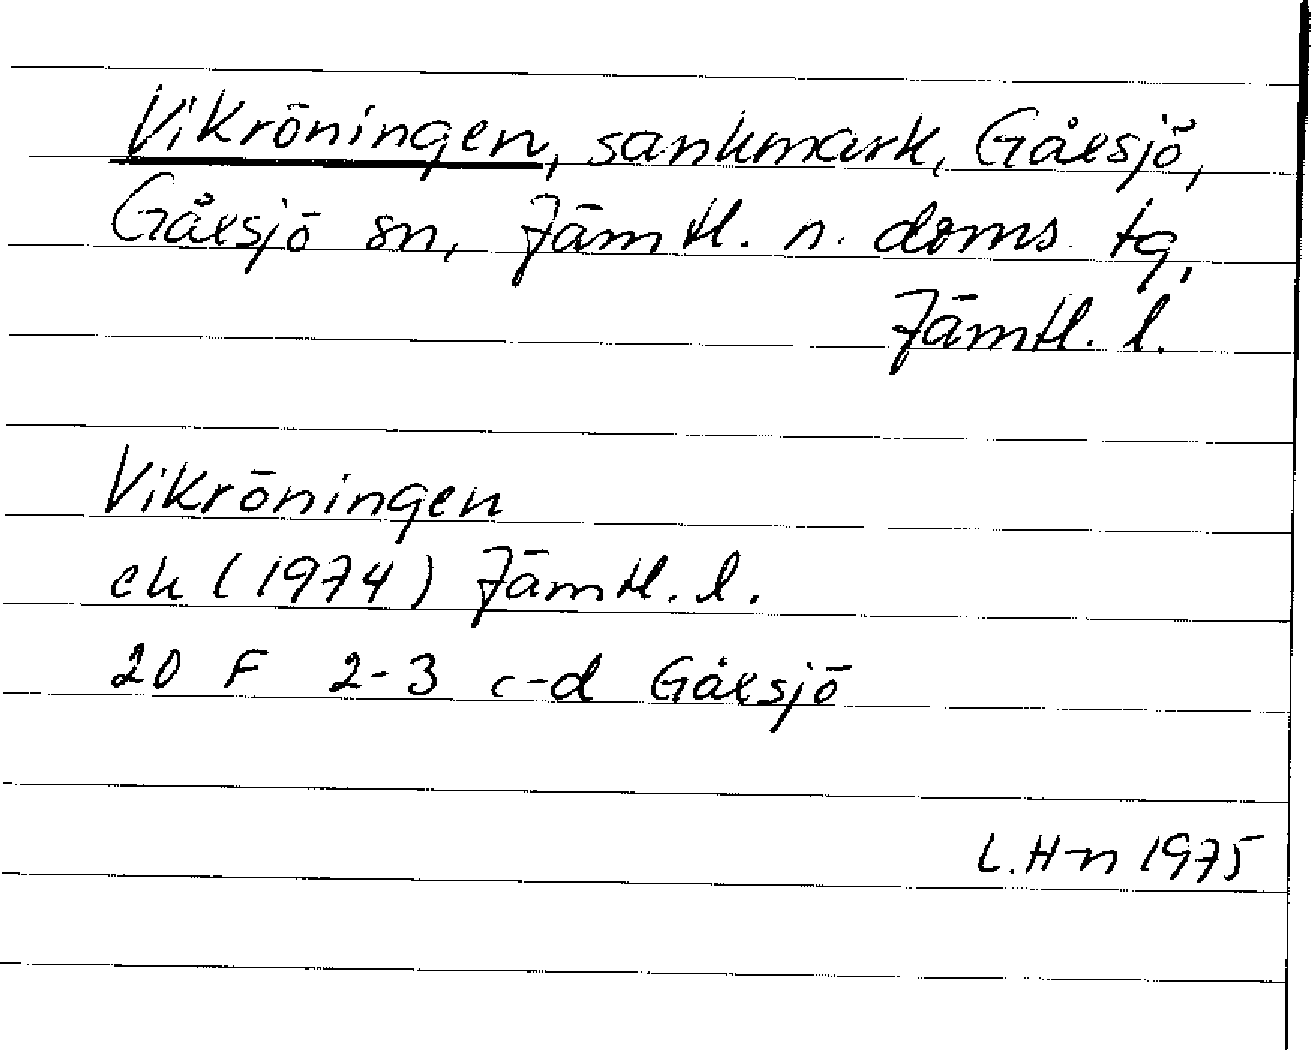 Vikröningen, sankmark, Gåxsjö,
Gåxsjö sn, Jämtl. n. doms. tg,
Jämtl. l.
Vikröningen
ek (1974) Jämtl. l.
20 F 2-3 c-d Gåxsjö
L. H-n 1975